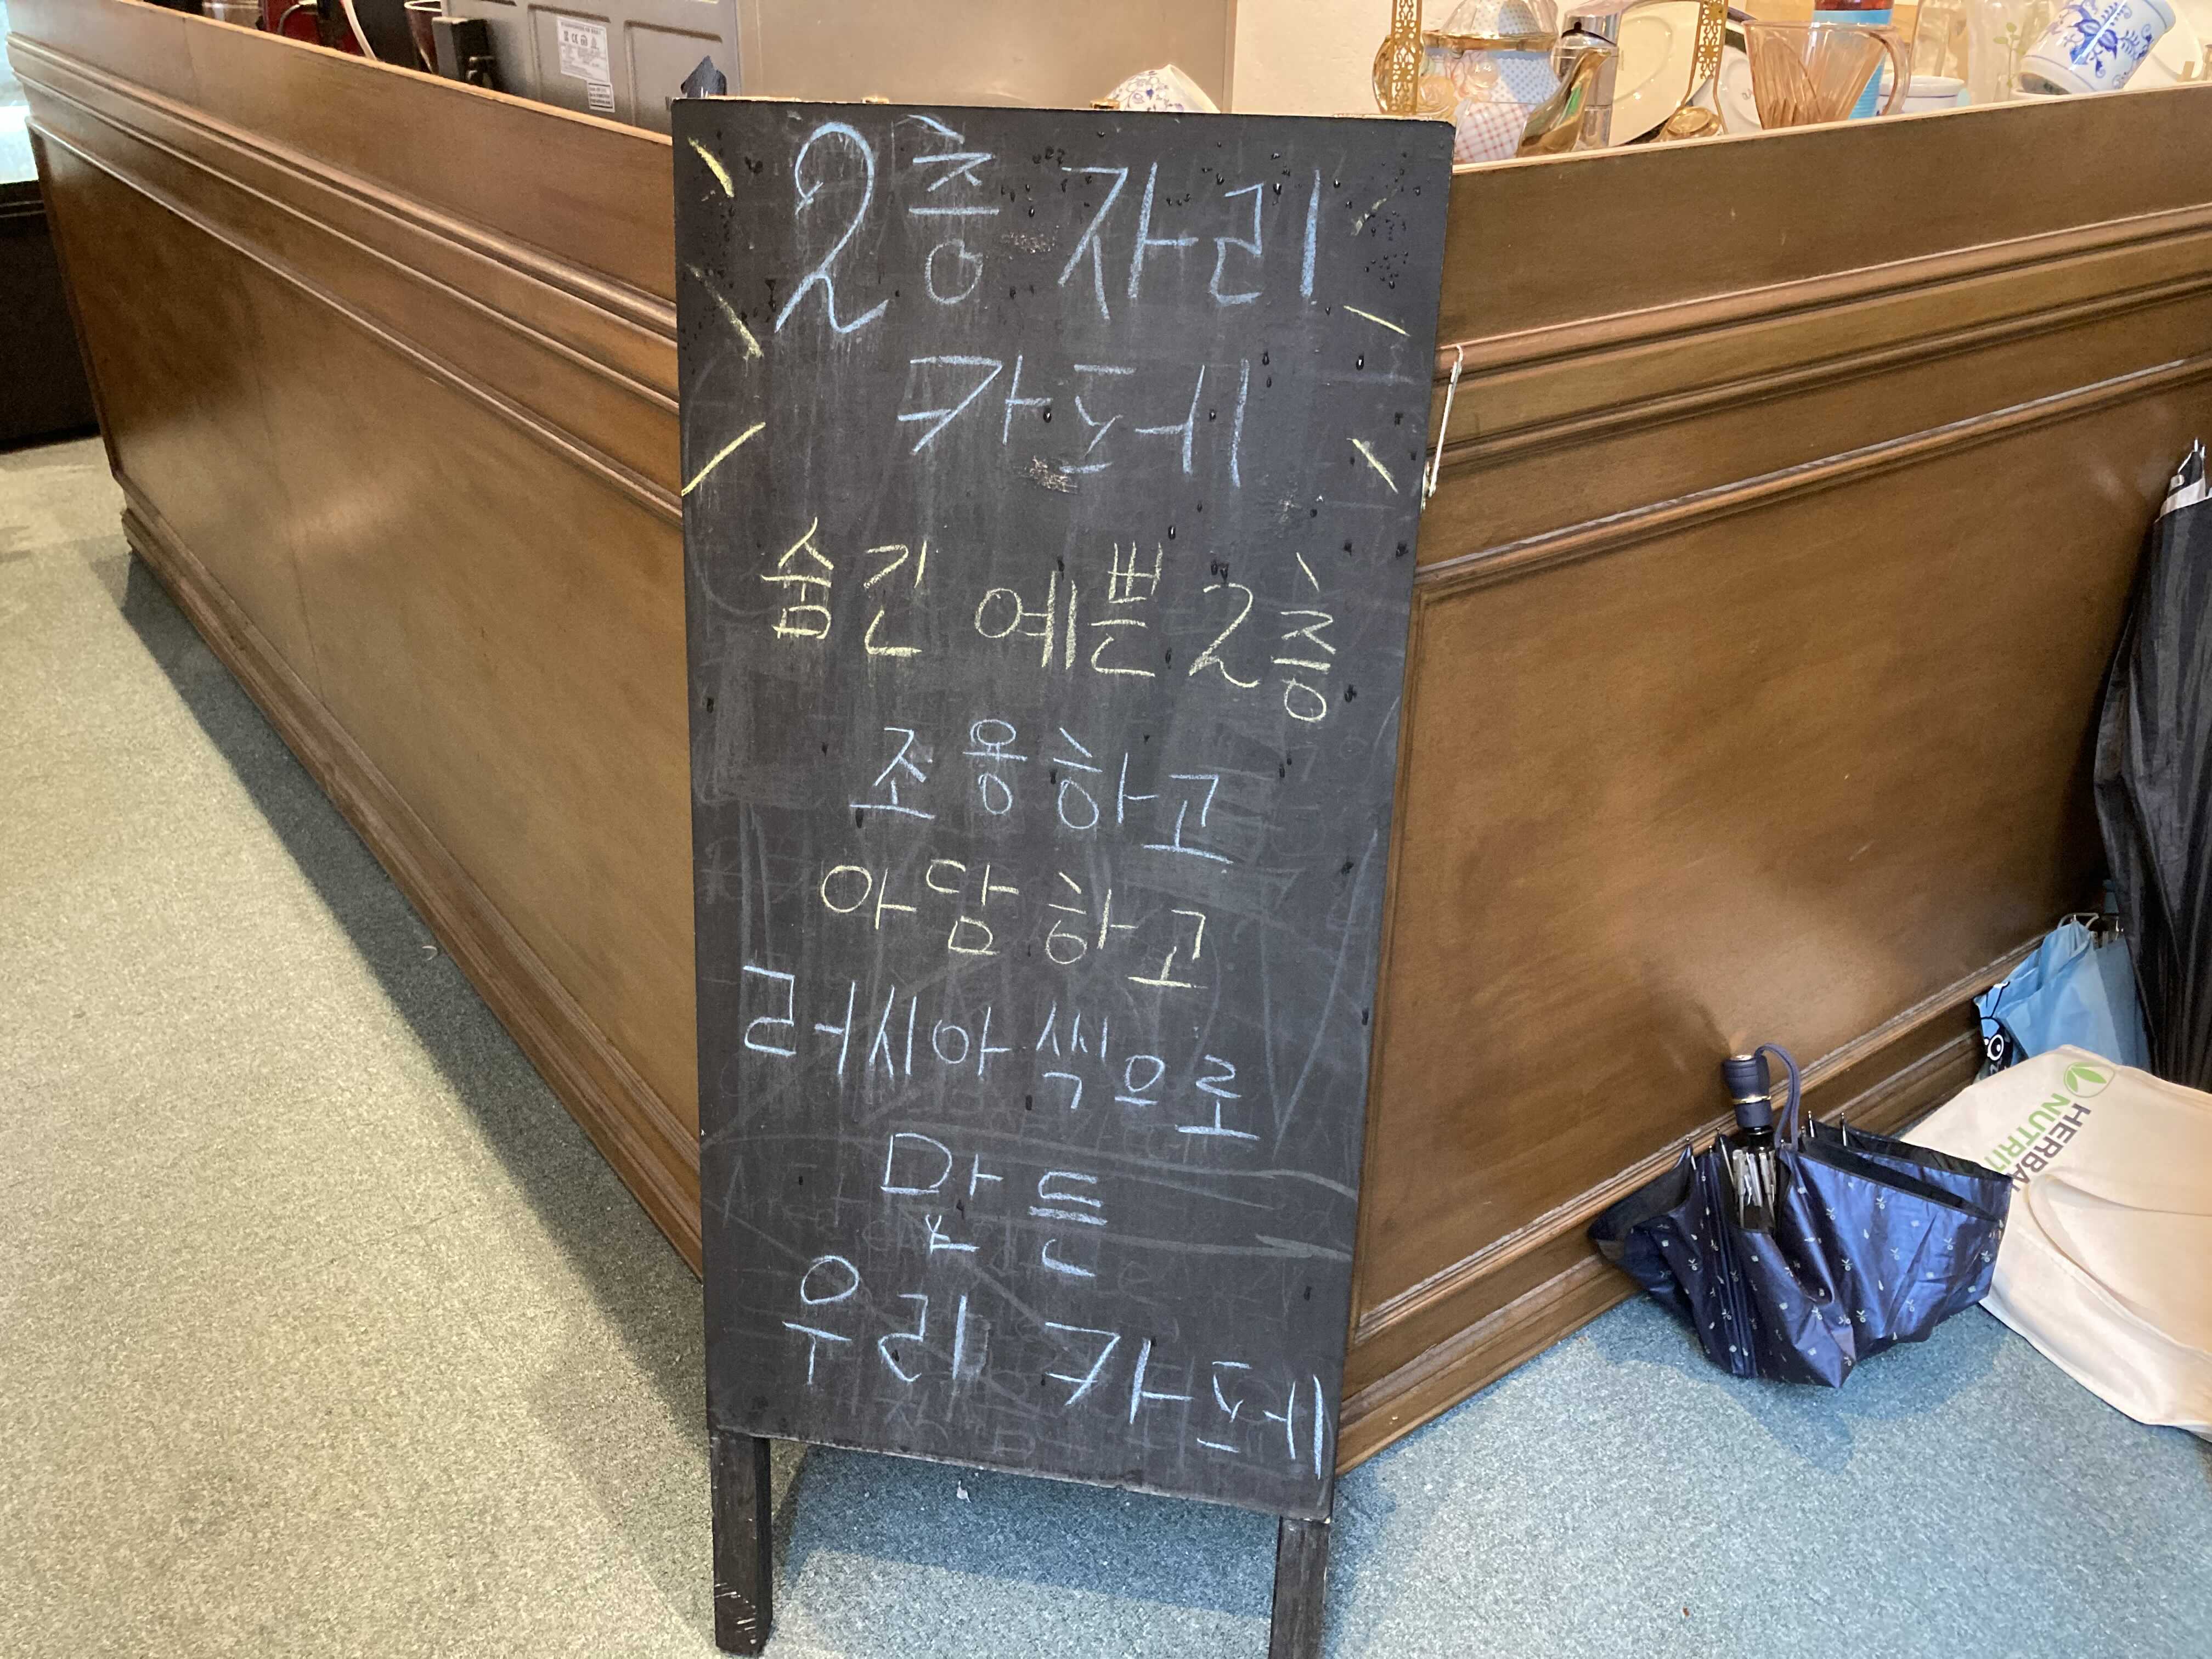 2층 자리
카페
숨긴 예쁜 2층
조용하고
아담하고
러시아 씩으로
만든
우리 카페